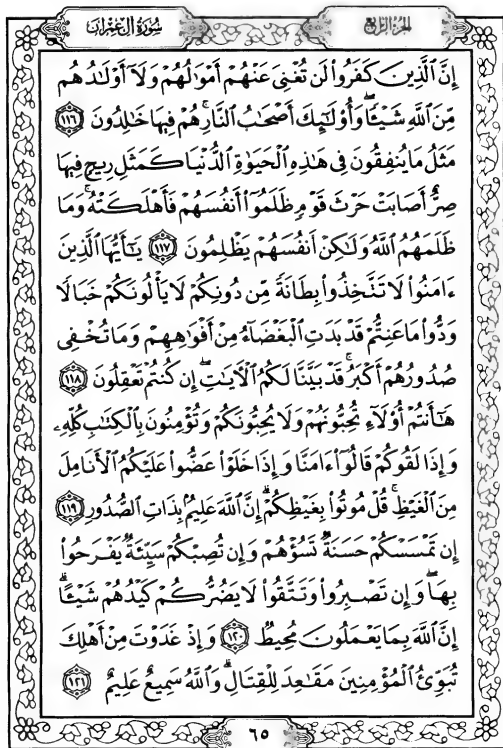 سُورَةُ آلِ عِمْرَانَ
الجُزْءُ الرَّابِعُ
إِنَّ ٱلَّذِينَ كَفَرُوا۟ لَن تُغْنِىَ عَنْهُمْ أَمْوَٰلُهُمْ وَلَآ أَوْلَٰدُهُم
مِّنَ ٱللَّهِ شَيْـًٔا ۖ وَأُو۟لَٰٓئِكَ أَصْحَٰبُ ٱلنَّارِ ۚ هُمْ فِيهَا خَٰلِدُونَ ١١٦
مَثَلُ مَا يُنفِقُونَ فِى هَٰذِهِ ٱلْحَيَوٰةِ ٱلدُّنْيَا كَمَثَلِ رِيحٍ فِيهَا
صِرٌّ أَصَابَتْ حَرْثَ قَوْمٍ ظَلَمُوٓا۟ أَنفُسَهُمْ فَأَهْلَكَتْهُ ۚ وَمَا
ظَلَمَهُمُ ٱللَّهُ وَلَٰكِنْ أَنفُسَهُمْ يَظْلِمُونَ ١١٧ يَٰٓأَيُّهَا ٱلَّذِينَ
ءَامَنُوا۟ لَا تَتَّخِذُوا۟ بِطَانَةً مِّن دُونِكُمْ لَا يَأْلُونَكُمْ خَبَالًا
وَدُّوا۟ مَا عَنِتُّمْ قَدْ بَدَتِ ٱلْبَغْضَآءُ مِنْ أَفْوَٰهِهِمْ وَمَا تُخْفِى
صُدُورُهُمْ أَكْبَرُ ۚ قَدْ بَيَّنَّا لَكُمُ ٱلْـَٔايَٰتِ ۖ إِن كُنتُمْ تَعْقِلُونَ ١١٨
هَٰٓأَنتُمْ أُو۟لَآءِ تُحِبُّونَهُمْ وَلَا يُحِبُّونَكُمْ وَتُؤْمِنُونَ بِٱلْكِتَٰبِ كُلِّهِۦ
وَإِذَا لَقُوكُمْ قَالُوٓا۟ ءَامَنَّا وَإِذَا خَلَوْا۟ عَضُّوا۟ عَلَيْكُمُ ٱلْأَنَامِلَ
مِنَ ٱلْغَيْظِ ۚ قُلْ مُوتُوا۟ بِغَيْظِكُمْ ۗ إِنَّ ٱللَّهَ عَلِيمٌۢ بِذَاتِ ٱلصُّدُورِ ١١٩
إِن تَمْسَسْكُمْ حَسَنَةٌ تَسُؤْهُمْ وَإِن تُصِبْكُمْ سَيِّئَةٌ يَفْرَحُوا۟
بِهَا ۖ وَإِن تَصْبِرُوا۟ وَتَتَّقُوا۟ لَا يَضُرُّكُمْ كَيْدُهُمْ شَيْـًٔا ۗ
إِنَّ ٱللَّهَ بِمَا يَعْمَلُونَ مُحِيطٌ ١٢٠ وَإِذْ غَدَوْتَ مِنْ أَهْلِكَ
تُبَوِّئُ ٱلْمُؤْمِنِينَ مَقَٰعِدَ لِلْقِتَالِ ۗ وَٱللَّهُ سَمِيعٌ عَلِيمٌ ١٢١
٦٥